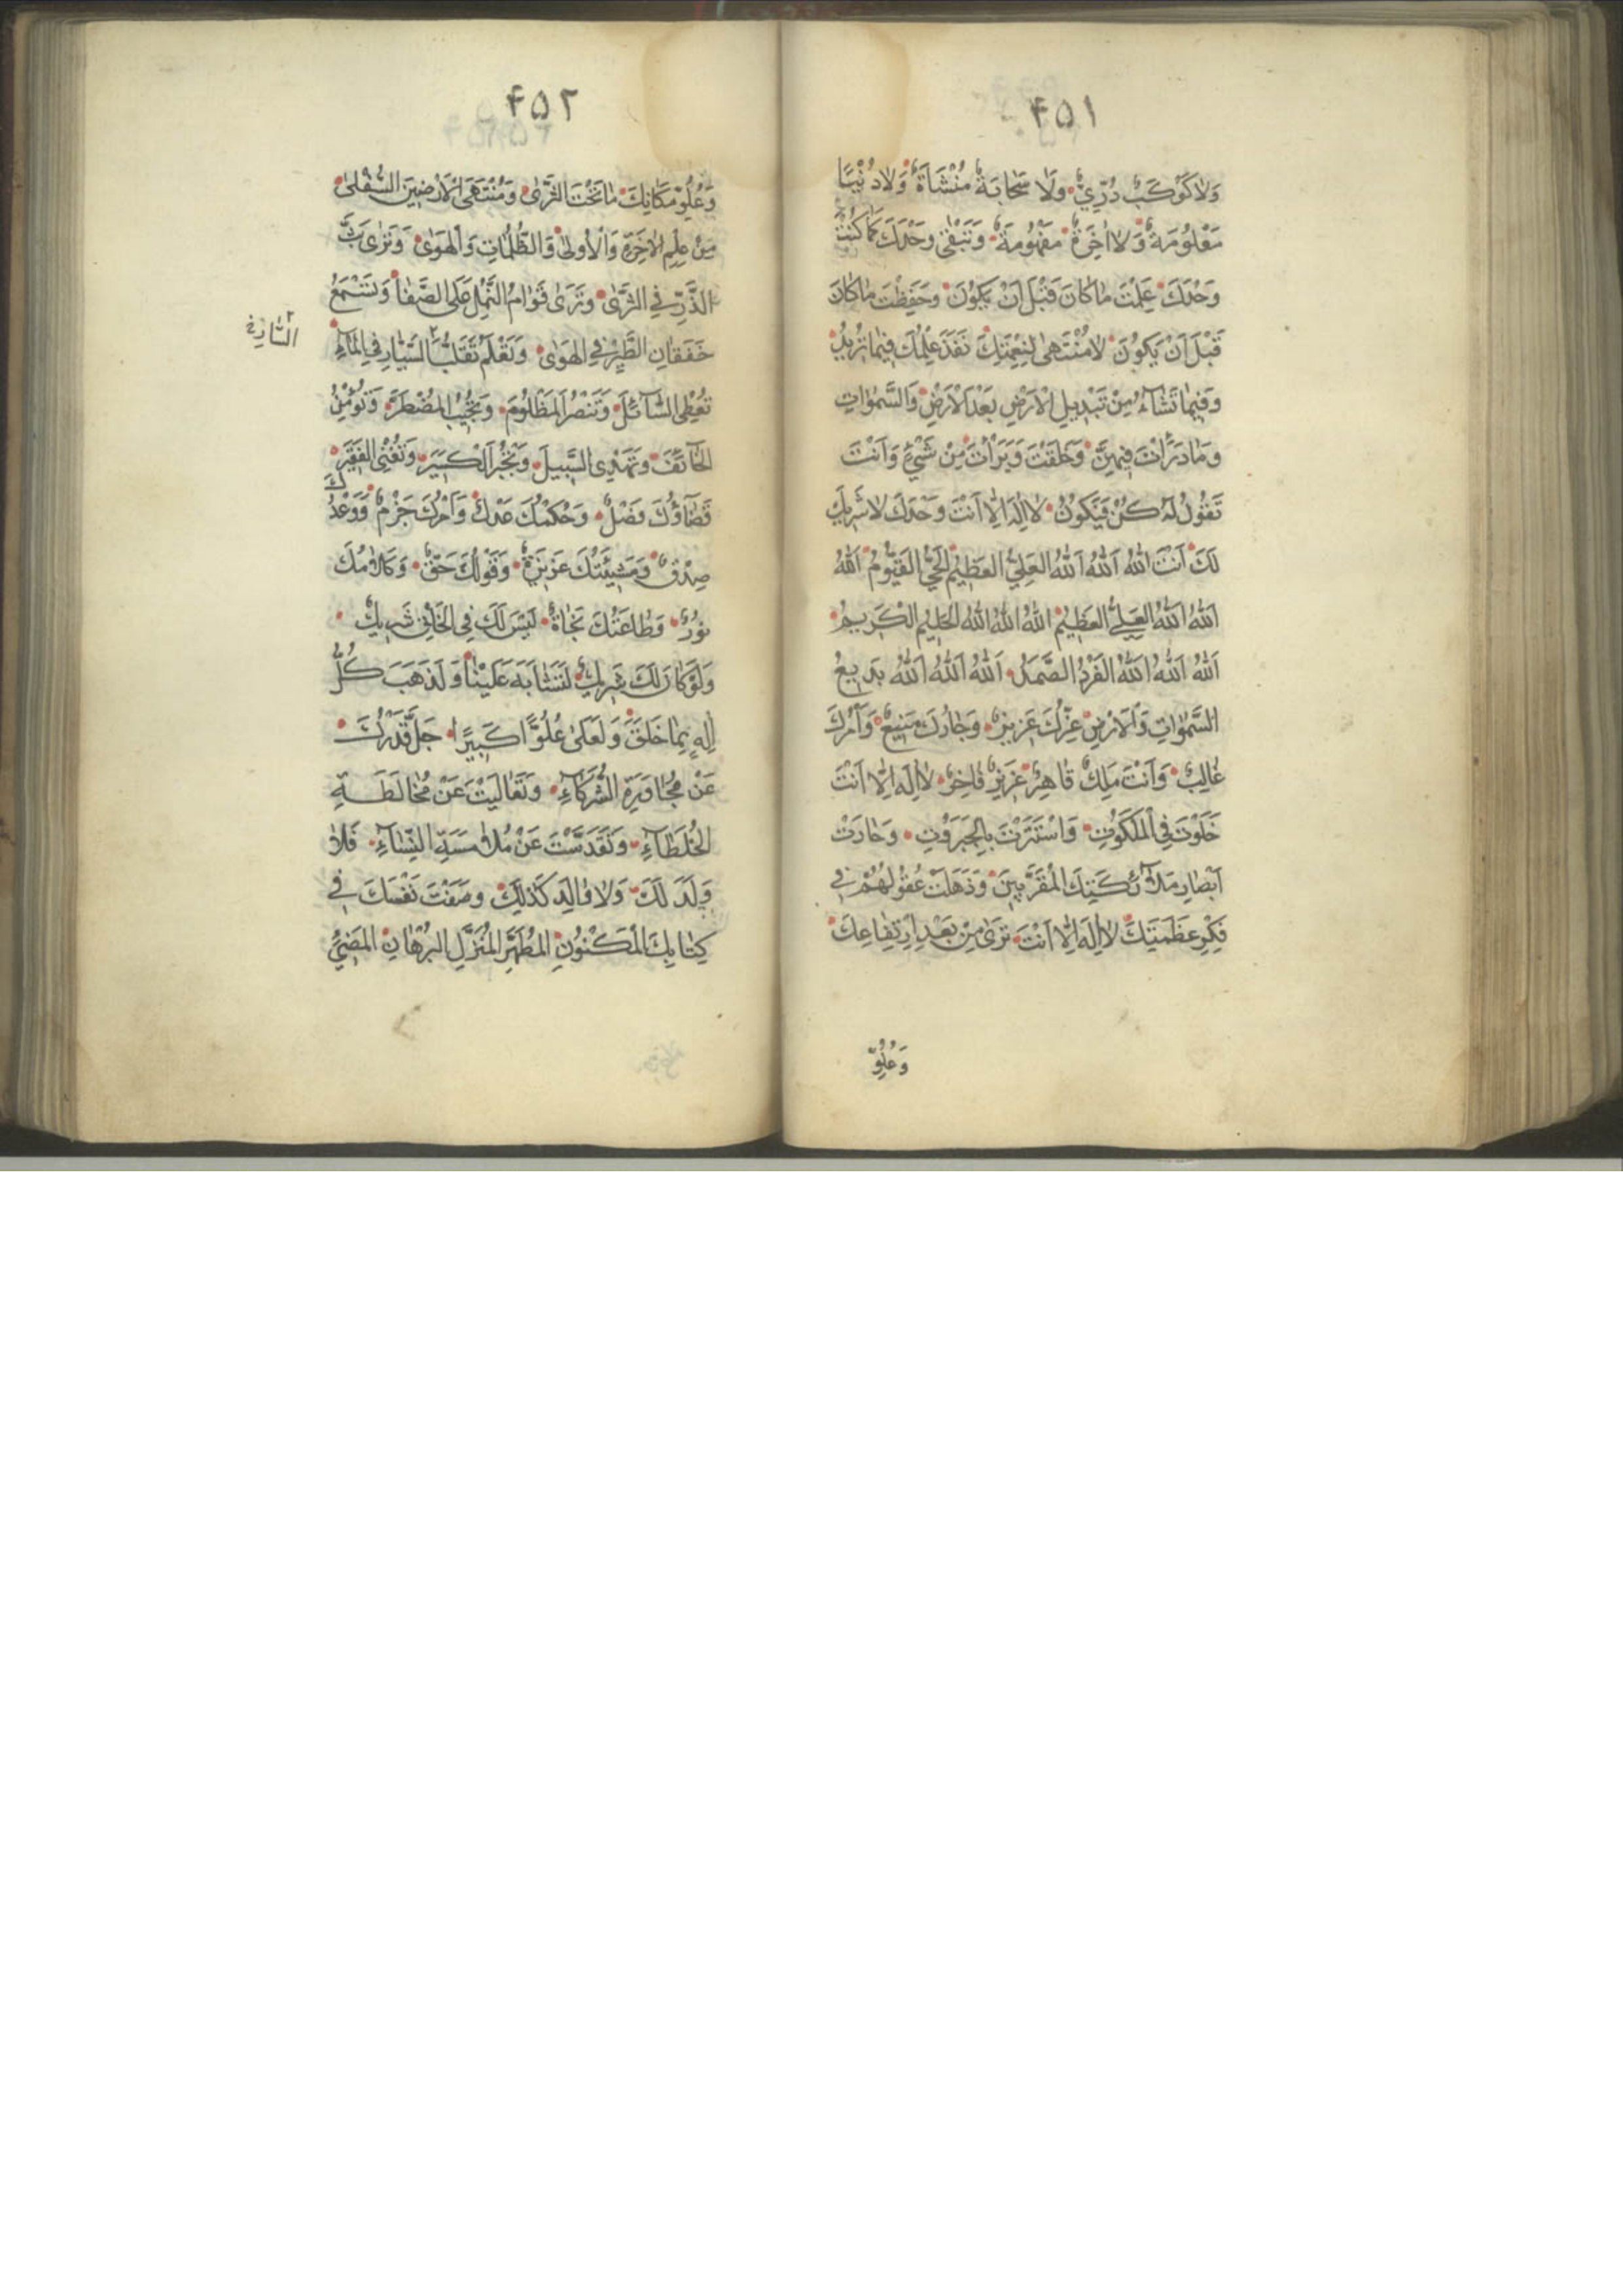 ۴۵۱
وَلَا كَوْكَبٌ دُرِّيٌّ وَلَا سَحَابَةٌ مُنْشَاَةٌ وَلَا دُنْيَا
مَعْلُومَةٌ وَلَا اٰخِرَةٌ مَفْهُومَةٌ وَتَبْقٰى وَحْدَكَ كَمَا كُنْتَ
وَحْدَكَ عَلِمْتَ مَا كَانَ قَبْلَ اَنْ يَكُونَ وَحَفِظْتَ مَا كَانَ
قَبْلَ اَنْ يَكُونَ لَا مُنْتَهٰى لِنِعْمَتِكَ نَفَذَ عِلْمُكَ فِيمَا تُرِيدُ
وَفِيمَا تَشَآءُ مِنْ تَبْدِيلِ الْاَرْضِ بَعْدَ الْاَرْضِ وَالسَّمٰوَاتِ
وَمَا ذَرَأْتَ فِيهِنَّ وَخَلَقْتَ وَبَرَأْتَ مِنْ شَيْءٍ وَاَنْتَ
تَقُولُ لَهُ كُنْ فَيَكُونُ لَا اِلٰهَ اِلَّا اَنْتَ وَحْدَكَ لَا شَرِيكَ
لَكَ اَنْتَ اللّٰهُ اَللّٰهُ اَللّٰهُ الْعَلِيُّ الْعَظِيمُ الْحَيُّ الْقَيُّومُ اَللّٰهُ
اَللّٰهُ اَللّٰهُ الْعَلِيُّ الْعَظِيمُ اَللّٰهُ اَللّٰهُ اَللّٰهُ الْحَلِيمُ الْكَرِيمُ
اَللّٰهُ اَللّٰهُ اَللّٰهُ الْفَرْدُ الصَّمَدُ اَللّٰهُ اَللّٰهُ اَللّٰهُ بَدِيعُ
السَّمٰوَاتِ وَالْاَرْضِ عِزُّكَ عَزِيزٌ وَجَارُكَ مَنِيعٌ وَاَمْرُكَ
غَالِبٌ وَاَنْتَ مَلِكٌ قَاهِرٌ عَزِيزٌ فَاخِرٌ لَا اِلٰهَ اِلَّا اَنْتَ
خَلَوْتَ فِي الْمَلَكُوتِ وَاسْتَتَرْتَ بِالْجَبَرُوتِ وَحَارَتْ
اَبْصَارُ مَلَآئِكَتِكَ الْمُقَرَّبِينَ وَذَهَلَتْ عُقُولُهُمْ فِي
فِكْرِ عَظَمَتِكَ لَا اِلٰهَ اِلَّا اَنْتَ تَرٰى مِنْ بَعْدِ ارْتِفَاعِكَ
وَعُلُوِّ
۴۵۲
وَعُلُوِّ مَكَانِكَ مَا تَحْتَ الثَّرٰى وَمُنْتَهَى الْاَرَضِينَ السُّفْلٰى
مِنْ عِلْمِ الْاٰخِرَةِ وَالْاُولٰى وَالظُّلُمَاتِ وَالْهَوٰى وَتَرٰى بَثَّ
الذَّرِّ فِي الثَّرٰى وَتَرٰى قَوَامَ النَّمْلِ عَلَى الصَّفَا وَتَسْمَعُ
خَفَقَانَ الطَّيْرِ فِي الْهَوٰى وَتَعْلَمُ تَقَلُّبَ السَّيَّارِ فِي الْمَآءِ
السَّارِيَةِ
تُعْطِي السَّآئِلَ وَتَنْصُرُ الْمَظْلُومَ وَتُجِيبُ الْمُضْطَرَّ وَتُؤْمِنُ
الْخَآئِفَ وَتَهْدِي السَّبِيلَ وَتَجْبُرُ الْكَسِيرَ وَتُغْنِي الْفَقِيرَ
قَضَآؤُكَ فَصْلٌ وَحُكْمُكَ عَدْلٌ وَاَمْرُكَ جَزْمٌ وَوَعْدُكَ
صِدْقٌ وَمَشِيَّتُكَ عَزِيزَةٌ وَقَوْلُكَ حَقٌّ وَكَلَامُكَ
نُورٌ وَطَاعَتُكَ نَجَاةٌ لَيْسَ لَكَ فِي الْخَلْقِ شَرِيكٌ
وَلَوْ كَانَ لَكَ شَرِيكٌ لَتَشَابَهَ عَلَيْنَا وَلَذَهَبَ كُلُّ
اِلٰهٍ بِمَا خَلَقَ وَلَعَلٰى عُلُوًّا كَبِيرًا جَلَّ قَدْرُكَ
عَنْ مُجَاوَرَةِ الشُّرَكَآءِ وَتَعَالَيْتَ عَنْ مُخَالَطَةِ
الْخُلَطَآءِ وَتَقَدَّسْتَ عَنْ مُلَامَسَةِ النِّسَآءِ فَلَا
وَلَدَ لَكَ وَلَا وَالِدَ كَذٰلِكَ وَصَفْتَ نَفْسَكَ فِي
كِتَابِكَ الْمَكْنُونِ الْمُطَهَّرِ الْمُنْزَلِ الْبُرْهَانِ الْمُضِيءِ